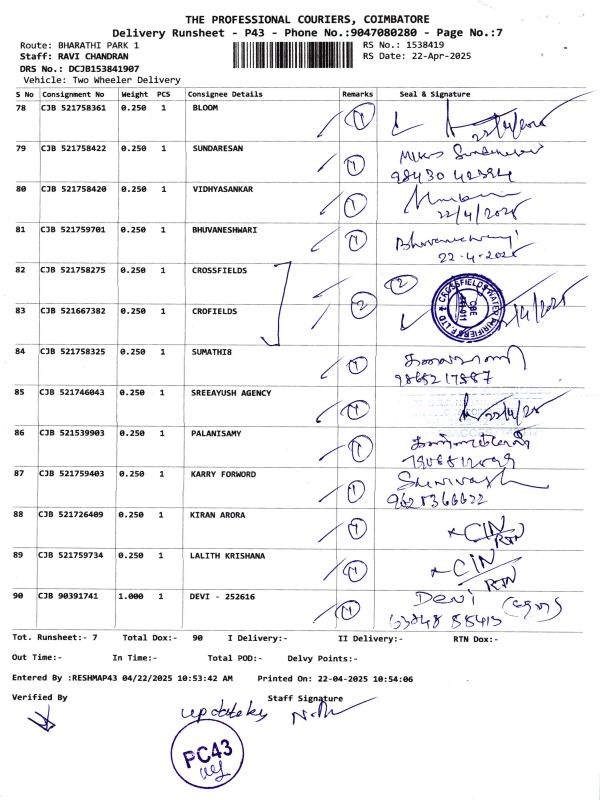 THE PROFESSIONAL COURIERS, COIMBATORE
Delivery Runsheet - P43 - Phone No.:9047080280 - Page No.:7
Route: BHARATHI PARK 1 RS No.: 1538419
Staff: RAVI CHANDRAN RS Date: 22-Apr-2025
DRS No.: DCJB153841907
Vehicle: Two Wheeler Delivery
S No Consignment No Weight PCS Consignee Details Remarks Seal & Signature
78 CJB 521758361 0.250 1 BLOOM 1 22/4/2025
79 CJB 521758422 0.250 1 SUNDARESAN 1
80 CJB 521758420 0.250 1 VIDHYASANKAR 1 22/4/2025
81 CJB 521759701 0.250 1 BHUVANESHWARI 1 Bhuvaneshwari
22-4-2025
82 CJB 521758275 0.250 1 CROSSFIELDS 2
83 CJB 521667382 0.250 1 CROFIELDS 2
84 CJB 521758325 0.250 1 SUMATHI8 1
9865217887
85 CJB 521746043 0.250 1 SREEAYUSH AGENCY 1 22/4/25
86 CJB 521539903 0.250 1 PALANISAMY 1
87 CJB 521759403 0.250 1 KARRY FORWORD 1 Shrinivash
9628366622
88 CJB 521726409 0.250 1 KIRAN ARORA 1 CIN
RTN
89 CJB 521759734 0.250 1 LALITH KRISHANA 1 CIN
RTN
90 CJB 90391741 1.000 1 DEVI - 252616 1 Devi
Tot. Runsheet:- 7 Total Dox:- 90 I Delivery:- II Delivery:- RTN Dox:-
Out Time:- In Time:- Total POD:- Delvy Points:-
Entered By :RESHMAP43 04/22/2025 10:53:42 AM Printed On: 22-04-2025 10:54:06
Verified By Staff Signature
PC43